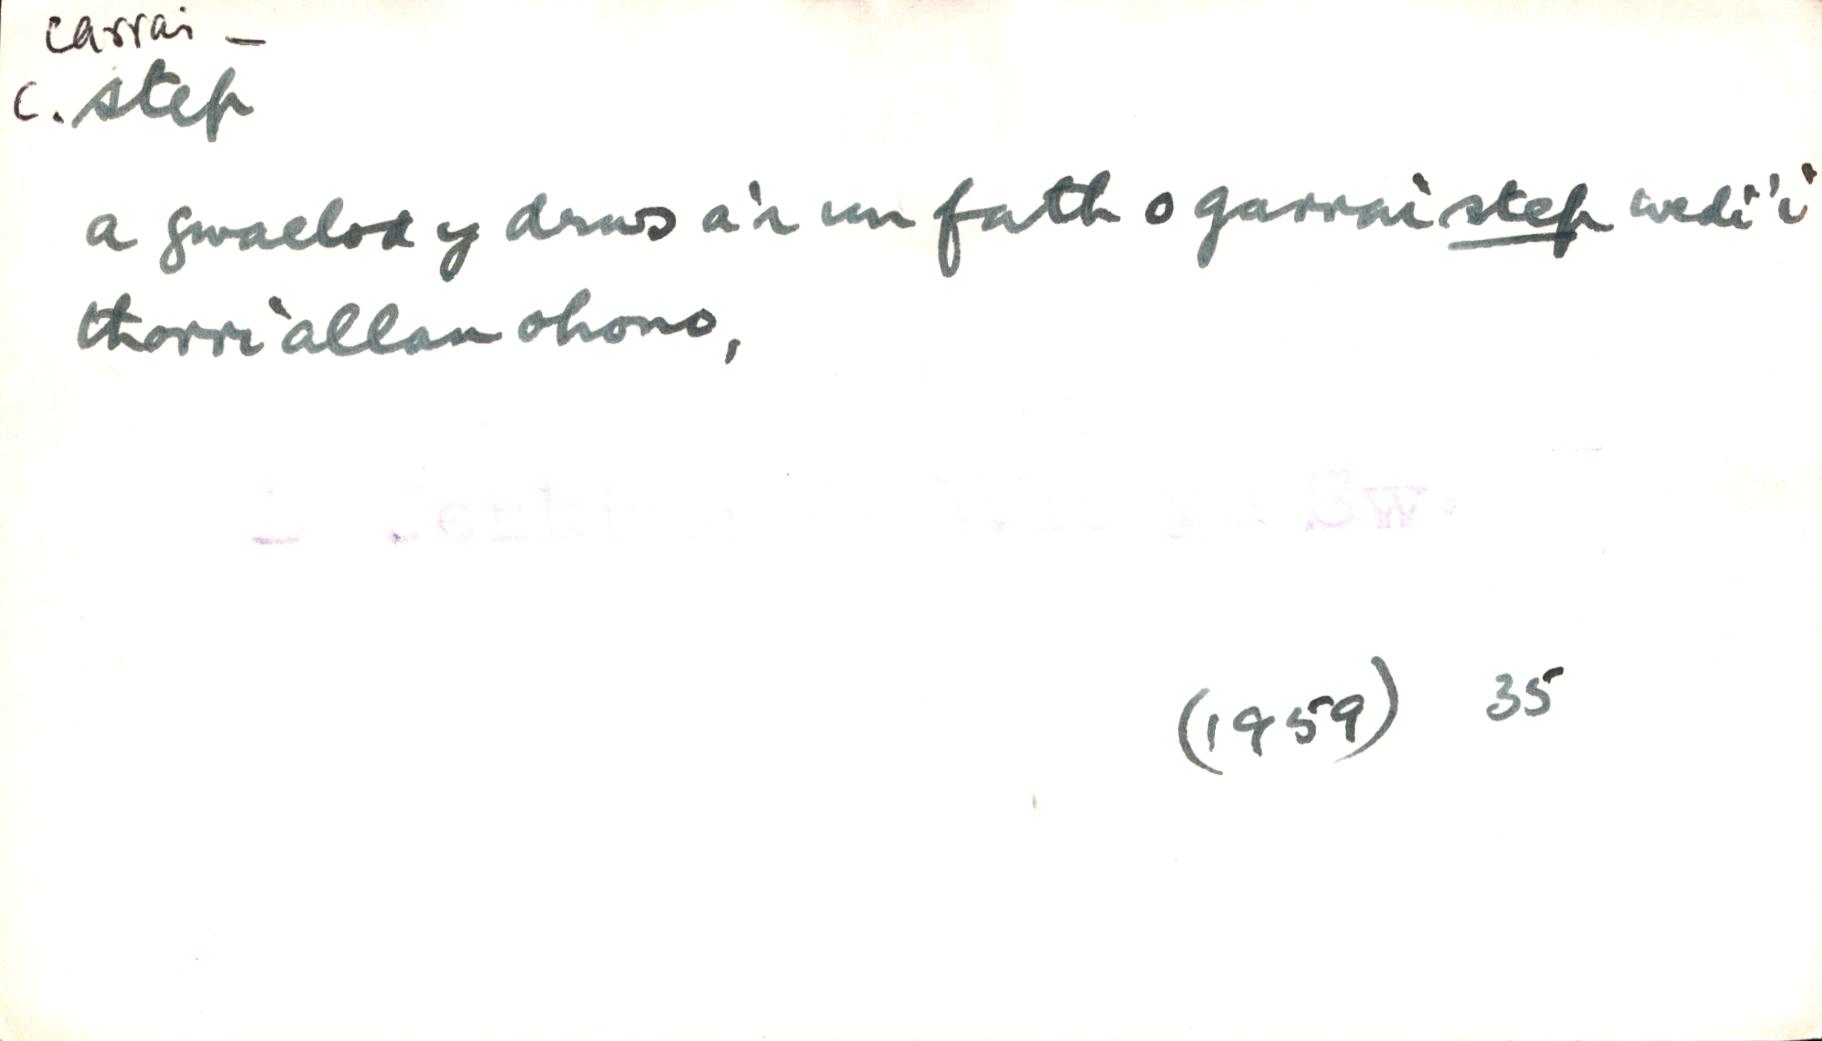 carrai –
c. step
a gwaelod y drws a'r un fath o garrai step wedi'i
thorri allan ohono,
(1959) 35